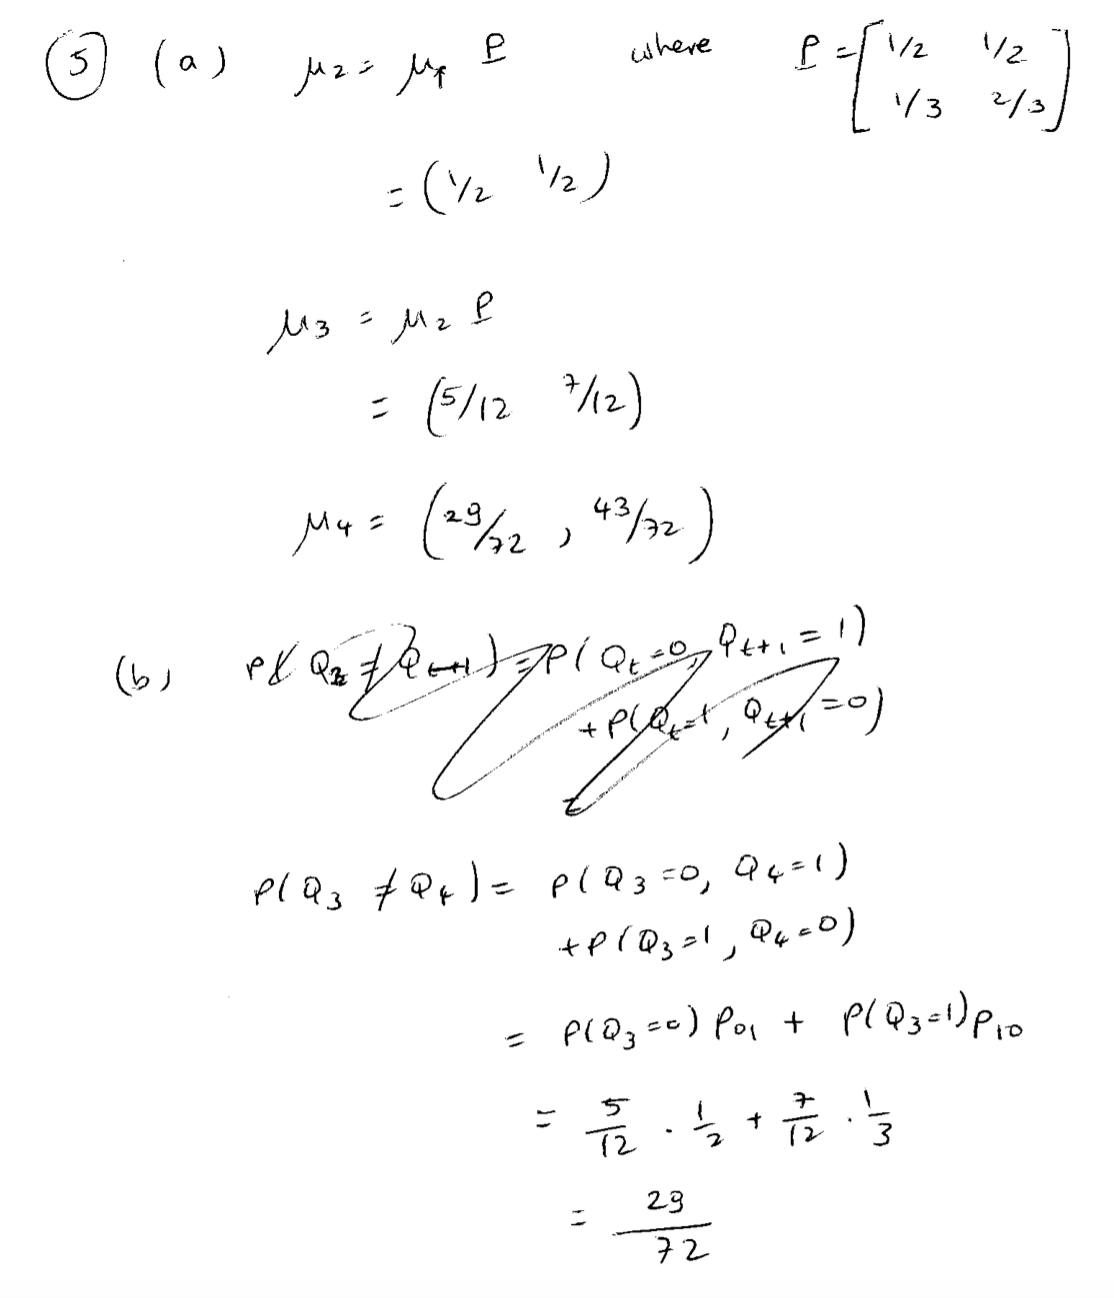 (5) (a) μ2 = μ1 P where P = [ 1/2 1/2
1/3 2/3 ]
= (1/2 1/2)
μ3 = μ2 P
= (5/12 7/12)
μ4 = (29/72 , 43/72)
(b) P( Q2 ≠ Qt+1 ) = P( Qt=0, Qt+1 = 1)
+ P(Qt=1, Qt+1 = 0)
P(Q3 ≠ Q4) = P(Q3=0, Q4=1)
+ P(Q3=1, Q4=0)
= P(Q3=0) P01 + P(Q3=1) P10
= 5/12 . 1/2 + 7/12 . 1/3
= 29/72